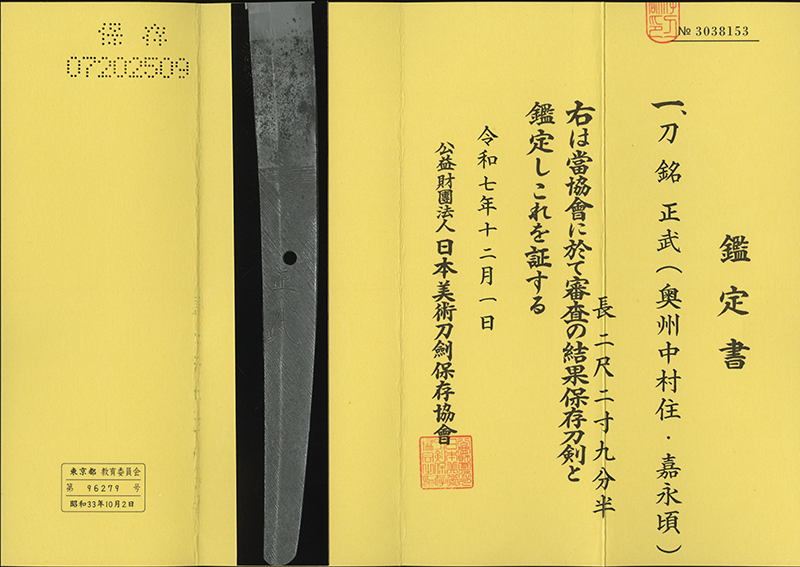 № 3038153
鑑定書
一、刀 銘 正武(奥州中村住・嘉永頃)
長二尺二寸九分半
右は當協會に於て審査の結果保存刀剣と
鑑定しこれを証する
令和七年十二月一日
公益財團法人日本美術刀劍保存協會
正
保存
07202509
東京都 教育委員会
第 96279 号
昭和33年10月2日